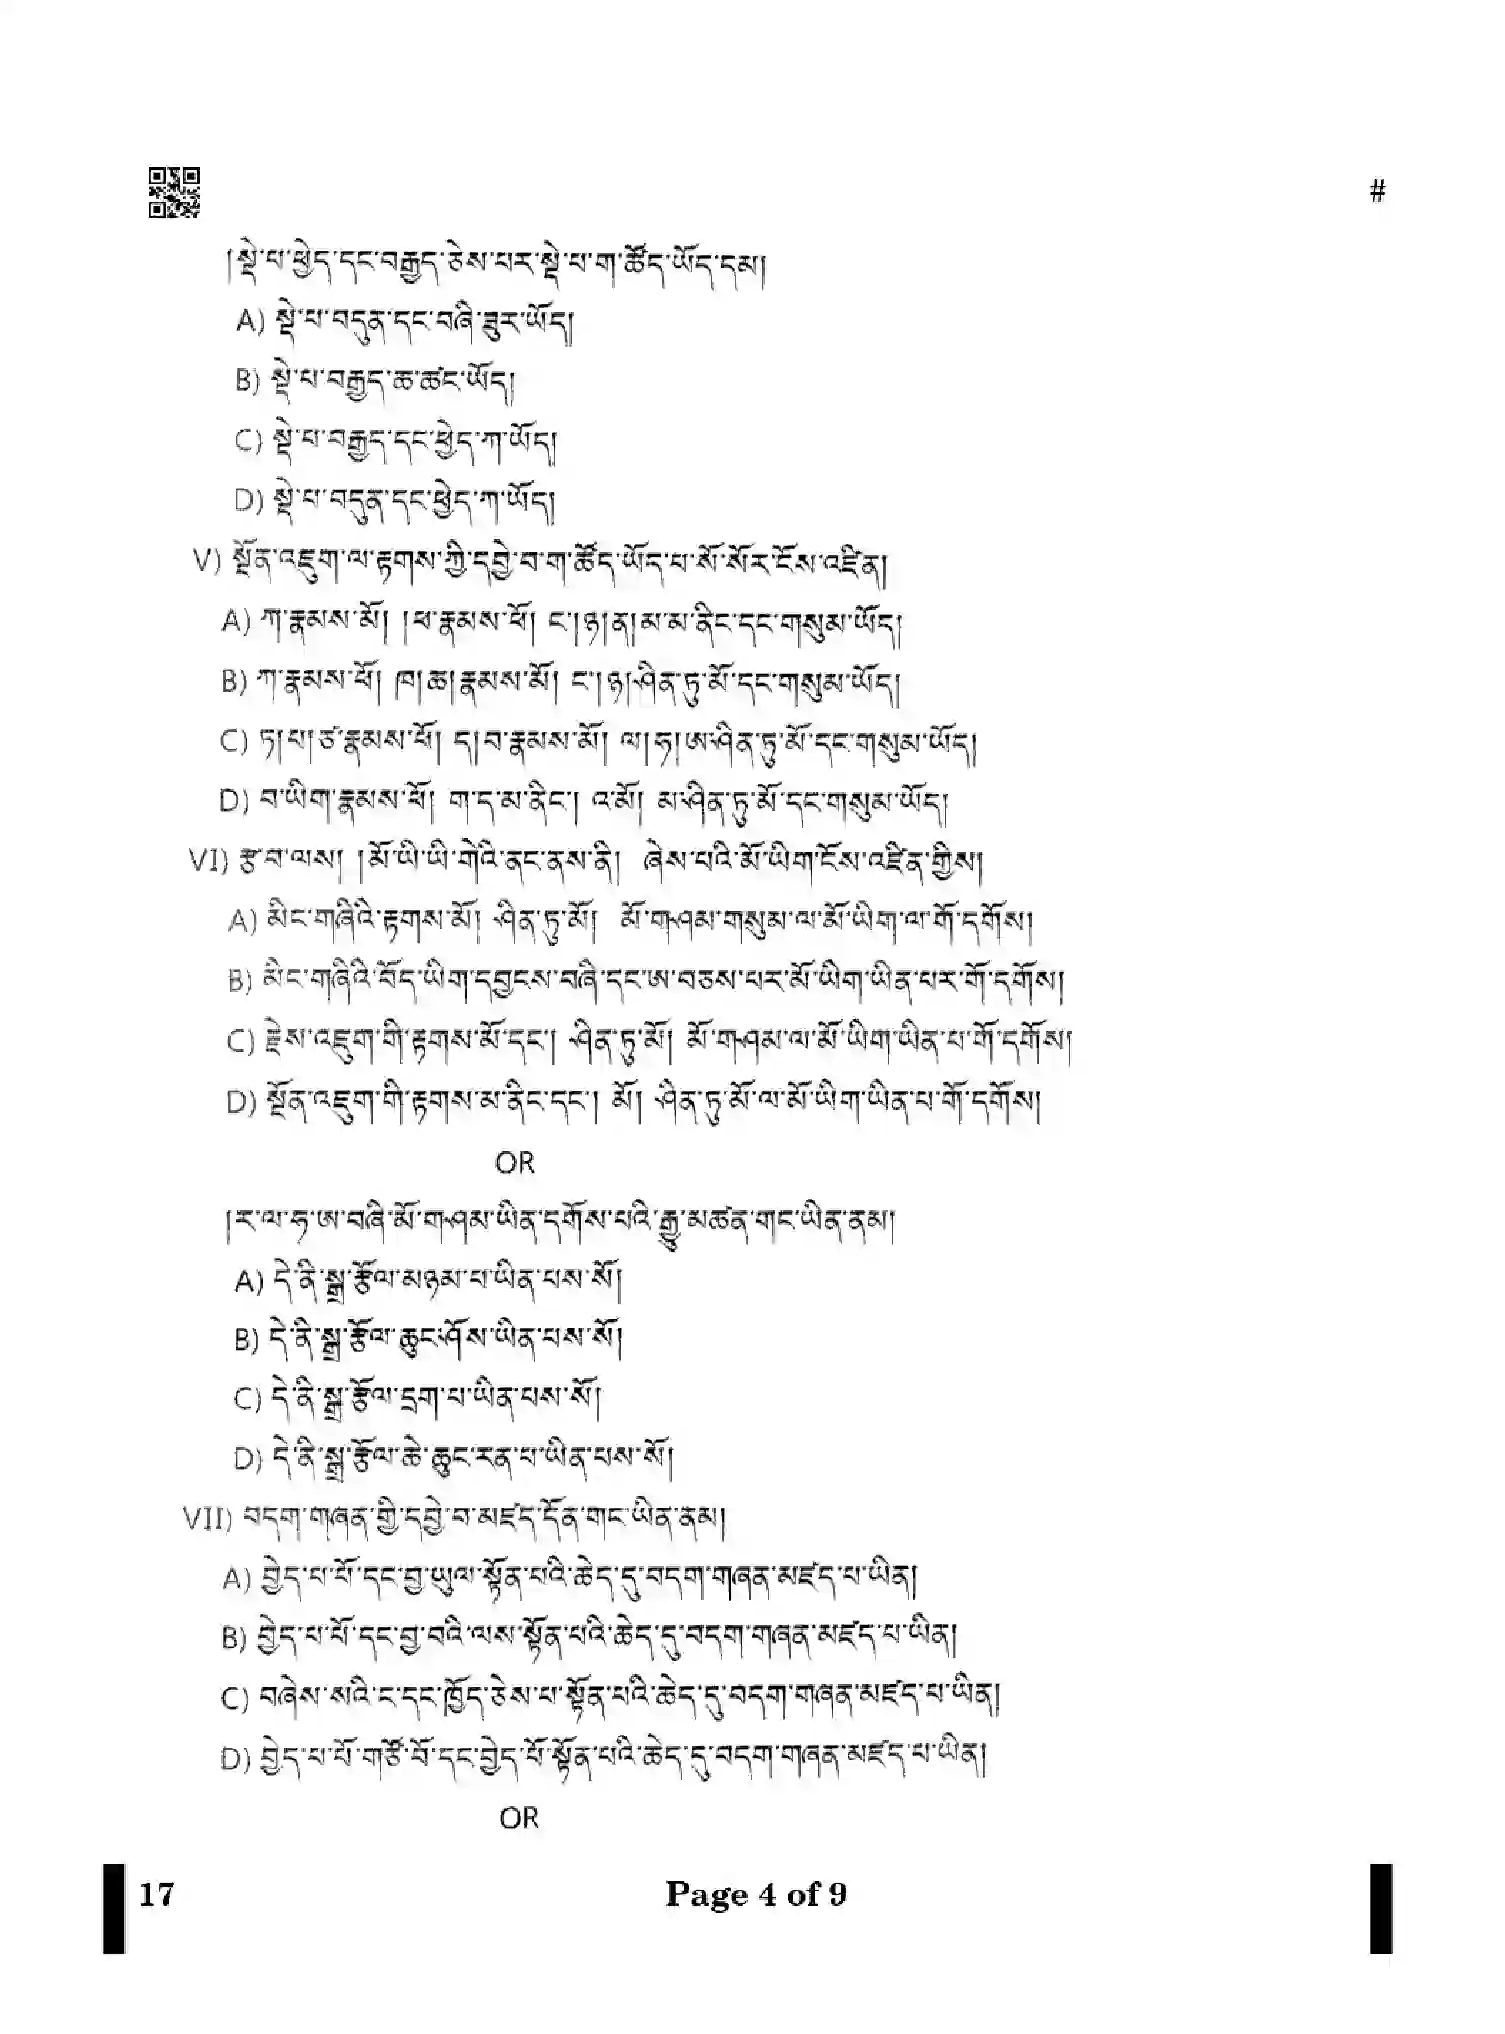 #
།སྡེ་པ་ཕྱེད་དང་བརྒྱད་ཅེས་པར་སྡེ་པ་ག་ཚོད་ཡོད་དམ།
A) སྡེ་པ་བདུན་དང་བཞི་ཟུར་ཡོད།
B) སྡེ་པ་བརྒྱད་ཆ་ཚང་ཡོད།
C) སྡེ་པ་བརྒྱད་དང་ཕྱེད་ཀ་ཡོད།
D) སྡེ་པ་བདུན་དང་ཕྱེད་ཀ་ཡོད།
V) སྔོན་འཇུག་ལ་རྟགས་ཀྱི་དབྱེ་བ་ག་ཚོད་ཡོད་པ་སོ་སོར་ངོས་འཛིན།
A) ཀ་རྣམས་མོ། །ཕ་རྣམས་ཕོ། ང་།ཉ།ན།མ་མ་ནིང་དང་གསུམ་ཡོད།
B) ཀ་རྣམས་ཕོ། ཁ།ཆ།རྣམས་མོ། ང་།ཉ།ཤིན་ཏུ་མོ་དང་གསུམ་ཡོད།
C) ཏ།པ།ཙ་རྣམས་ཕོ། ད།བ་རྣམས་མོ། ལ།ཧ།ཨ་ཤིན་ཏུ་མོ་དང་གསུམ་ཡོད།
D) བ་ཡིག་རྣམས་ཕོ། ག་ད་མ་ནིང་། འ་མོ། མ་ཤིན་ཏུ་མོ་དང་གསུམ་ཡོད།
VI) རྩ་བ་ལས། །མོ་ཡི་ཡི་གེའི་ནང་ནས་ནི། ཞེས་པའི་མོ་ཡིག་ངོས་འཛིན་གྱིས།
A) མིང་གཞིའི་རྟགས་མོ། ཤིན་ཏུ་མོ། མོ་གཤམ་གསུམ་ལ་མོ་ཡིག་ལ་གོ་དགོས།
B) མིང་གཞིའི་བོད་ཡིག་དབྱངས་བཞི་དང་ཨ་བཅས་པར་མོ་ཡིག་ཡིན་པར་གོ་དགོས།
C) རྗེས་འཇུག་གི་རྟགས་མོ་དང་། ཤིན་ཏུ་མོ། མོ་གཤམ་ལ་མོ་ཡིག་ཡིན་པ་གོ་དགོས།
D) སྔོན་འཇུག་གི་རྟགས་མ་ནིང་དང་། མོ། ཤིན་ཏུ་མོ་ལ་མོ་ཡིག་ཡིན་པ་གོ་དགོས།
OR
།ར་ལ་ཧ་ཨ་བཞི་མོ་གཤམ་ཡིན་དགོས་པའི་རྒྱུ་མཚན་གང་ཡིན་ནམ།
A) དེ་ནི་སྒྲ་རྩོལ་མཉམ་པ་ཡིན་པས་སོ།
B) དེ་ནི་སྒྲ་རྩོལ་ཆུང་ཤོས་ཡིན་པས་སོ།
C) དེ་ནི་སྒྲ་རྩོལ་དྲག་པ་ཡིན་པས་སོ།
D) དེ་ནི་སྒྲ་རྩོལ་ཆེ་ཆུང་རན་པ་ཡིན་པས་སོ།
VII) བདག་གཞན་གྱི་དབྱེ་བ་མཛད་དོན་གང་ཡིན་ནམ།
A) བྱེད་པ་པོ་དང་བྱ་ཡུལ་སྟོན་པའི་ཆེད་དུ་བདག་གཞན་མཛད་པ་ཡིན།
B) བྱེད་པ་པོ་དང་བྱ་བའི་ལས་སྟོན་པའི་ཆེད་དུ་བདག་གཞན་མཛད་པ་ཡིན།
C) བཞེས་སའི་ང་དང་ཁྱོད་ཅེས་པ་སྟོན་པའི་ཆེད་དུ་བདག་གཞན་མཛད་པ་ཡིན།
D) བྱེད་པ་པོ་གཙོ་བོ་དང་བྱེད་པོ་སྟོན་པའི་ཆེད་དུ་བདག་གཞན་མཛད་པ་ཡིན།
OR
17 Page 4 of 9